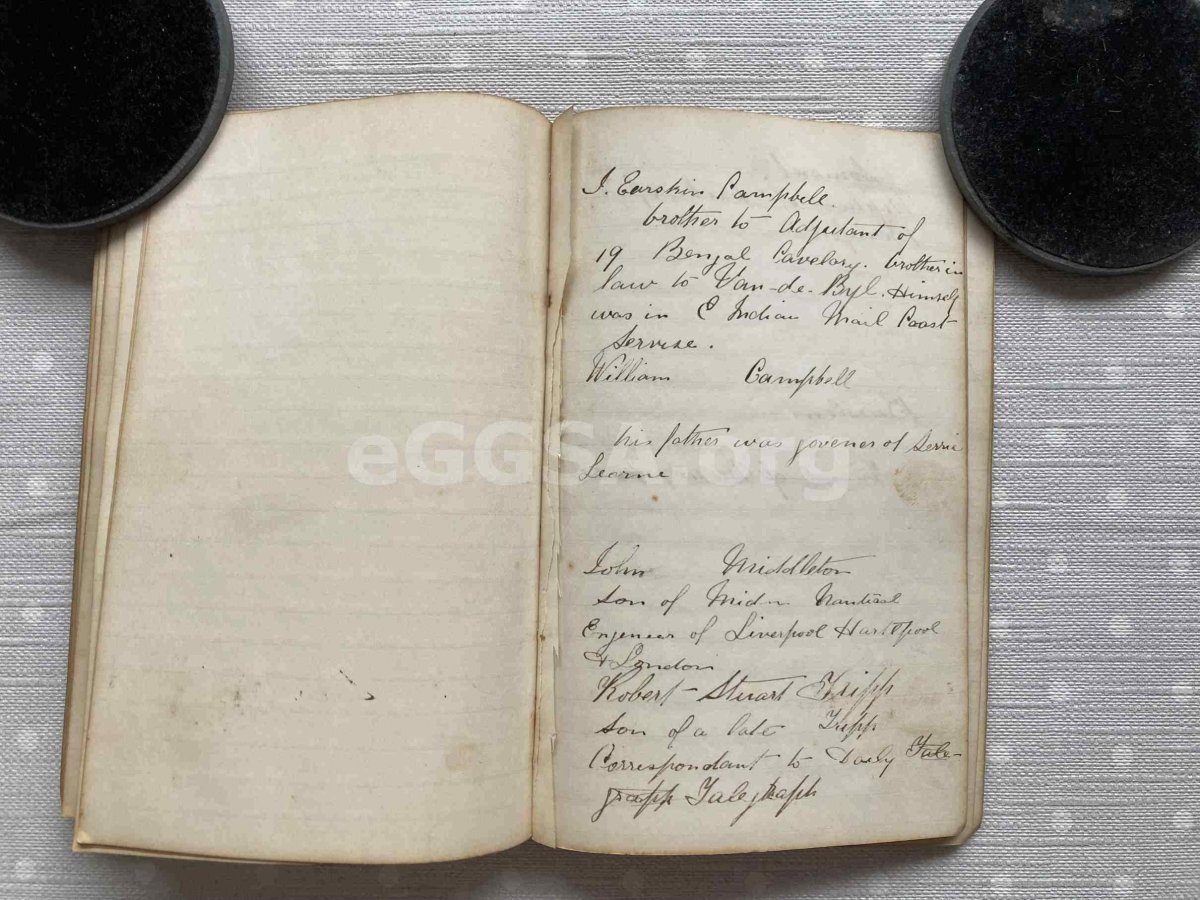 I. Earskin Campbell.
brother to Adjutant of
19 Bengal Cavelary. brother in
law to Van-de-Byl. Himself
was in E Indian Mail Coast
Servise.
William Campbell
his father was govener of Serrie
Learne
eGGSA.org
John Middleton
son of Midn Nautical
Engeneer of Liverpool Hartlpool
& London
Robert Stuart Tripp
son of a late Tripp
Correspondant to Daily Tale-
graph Talegraph